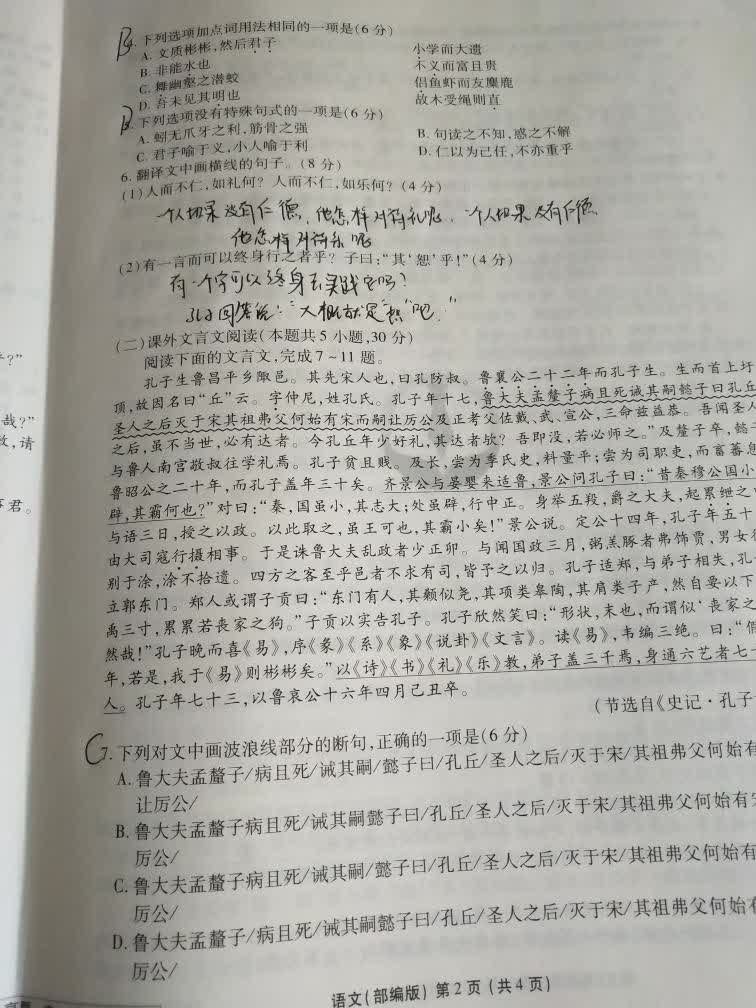 B
4. 下列选项加点词用法相同的一项是(6分)
A. 文质彬彬,然后君子 小学而大遗
B. 非能水也 不义而富且贵
C. 舞幽壑之潜蛟 侣鱼虾而友麋鹿
D. 吾未见其明也 故木受绳则直
下列选项没有特殊句式的一项是(6分)
A. 蚓无爪牙之利,筋骨之强 B. 句读之不知,惑之不解
C. 君子喻于义,小人喻于利 D. 仁以为己任,不亦重乎
6. 翻译文中画横线的句子。(8分)
(1)人而不仁,如礼何?人而不仁,如乐何?(4分)
一个人如果没有仁德,他怎样对待礼呢,一个人如果没有仁德
他怎样对待乐呢
(2)有一言而可以终身行之者乎?子曰:“其‘恕’乎!”(4分)
有一个字可以终身去实践它吗?
孔子回答说:“大概就是“恕”吧。”
(二)课外文言文阅读(本题共5小题,30分)
阅读下面的文言文,完成7~11题。
孔子生鲁昌平乡陬邑。其先宋人也,曰孔防叔。鲁襄公二十二年而孔子生。生而首上圩
顶,故因名曰“丘”云。字仲尼,姓孔氏。孔子年十七,鲁大夫孟釐子病且死诫其嗣懿子曰孔丘
圣人之后灭于宋其祖弗父何始有宋而嗣让厉公及正考父佐戴、武、宣公,三命兹益恭。吾闻圣人
之后,虽不当世,必有达者。今孔丘年少好礼,其达者欤?吾即没,若必师之。”及釐子卒,懿子
与鲁人南宫敬叔往学礼焉。孔子贫且贱。及长,尝为季氏史,料量平;尝为司职吏,而畜蕃息
鲁昭公之二十年,而孔子盖年三十矣。齐景公与晏婴来适鲁,景公问孔子曰:“昔秦穆公国小
辟,其霸何也?”对曰:“秦,国虽小,其志大;处虽辟,行中正。身举五羖,爵之大夫,起累绁之中
与语三日,授之以政。以此取之,虽王可也,其霸小矣!”景公说。定公十四年,孔子年五十
由大司寇行摄相事。于是诛鲁大夫乱政者少正卯。与闻国政三月,粥羔豚者弗饰贾,男女行
别于涂,涂不拾遗。四方之客至乎邑者不求有司,皆予之以归。孔子适郑,与弟子相失,孔子
立郭东门。郑人或谓子贡曰:“东门有人,其颡似尧,其项类皋陶,其肩类子产,然自要以下
禹三寸,累累若丧家之狗。”子贡以实告孔子。孔子欣然笑曰:“形状,末也,而谓似‘丧家之
然哉!”孔子晚而喜《易》,序《彖》《系》《象》《说卦》《文言》。读《易》,韦编三绝。曰:“假
年,若是,我于《易》则彬彬矣。”以《诗》《书》《礼》《乐》教,弟子盖三千焉,身通六艺者七十
人。孔子年七十三,以鲁哀公十六年四月己丑卒。
(节选自《史记·孔子
C
. 下列对文中画波浪线部分的断句,正确的一项是(6分)
A. 鲁大夫孟釐子/病且死/诫其嗣/懿子曰/孔丘/圣人之后/灭于宋/其祖弗父何始有
让厉公/
B. 鲁大夫孟釐子病且死/诫其嗣懿子曰/孔丘/圣人之后/灭于宋/其祖弗父何始有宋
厉公/
C. 鲁大夫孟釐子病且死/诫其嗣/懿子曰/孔丘/圣人之后/灭于宋/其祖弗父何始有
厉公/
D. 鲁大夫孟釐子/病且死/诫其嗣懿子曰/孔丘/圣人之后/灭于宋/其祖弗父何始有
厉公/
语文(部编版) 第2页(共4页)
?”
哉?”
敢,请
事君。